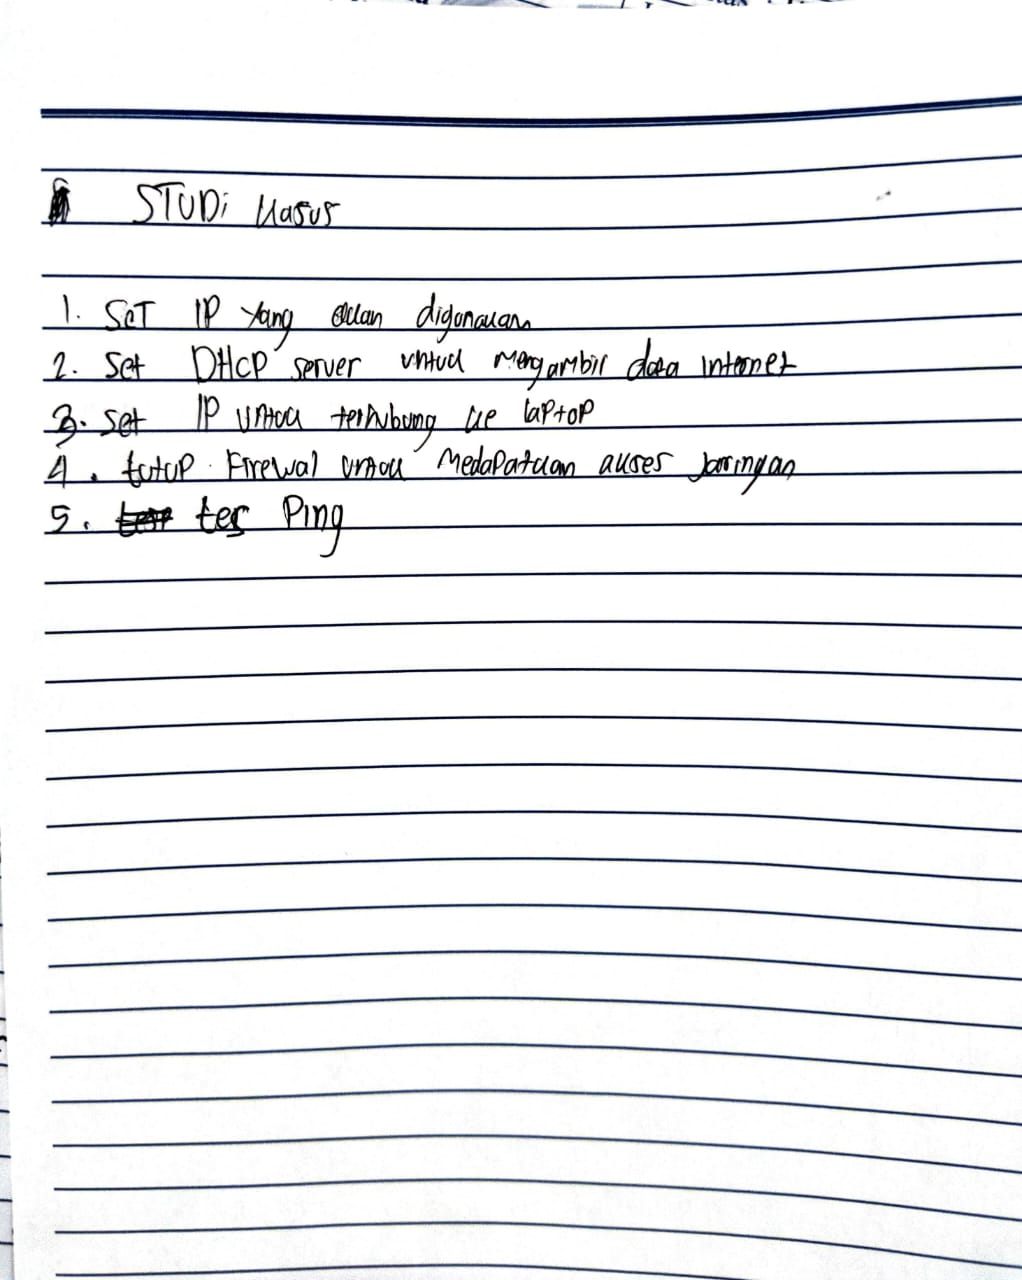 STUDi Kasus
1. SeT IP yang akan digunakan
2. Set DHCP server untuk mengambil data internet
3. Set IP untuk terhubung ke laptop
4. tutup Firewal untuk Medapatkan akses jaringan
5. tes Ping